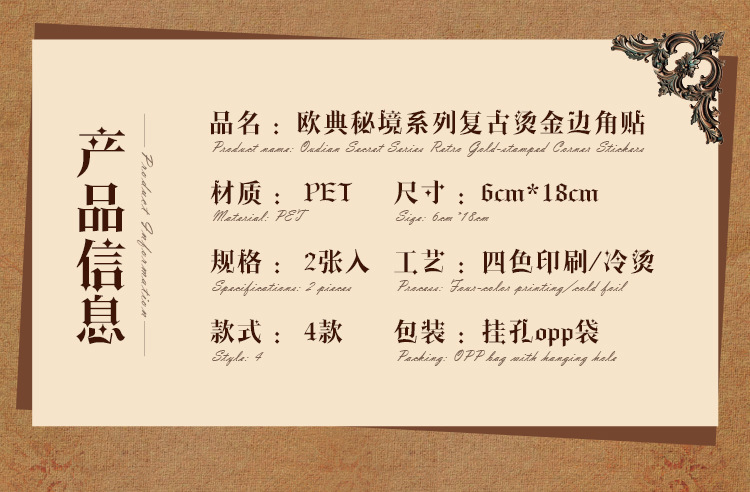 产品信息
Product Information
品名：欧典秘境系列复古烫金边角贴
Product name: Oudian Secret Series Retro Gold-stamped Corner Stickers
材质：PET 尺寸：6cm*18cm
Material: PET Size: 6cm*18cm
规格：2张入 工艺：四色印刷/冷烫
Specifications: 2 pieces Process: Four-color printing/cold foil
款式：4款 包装：挂孔opp袋
Style: 4 Packing: OPP bag with hanging hole